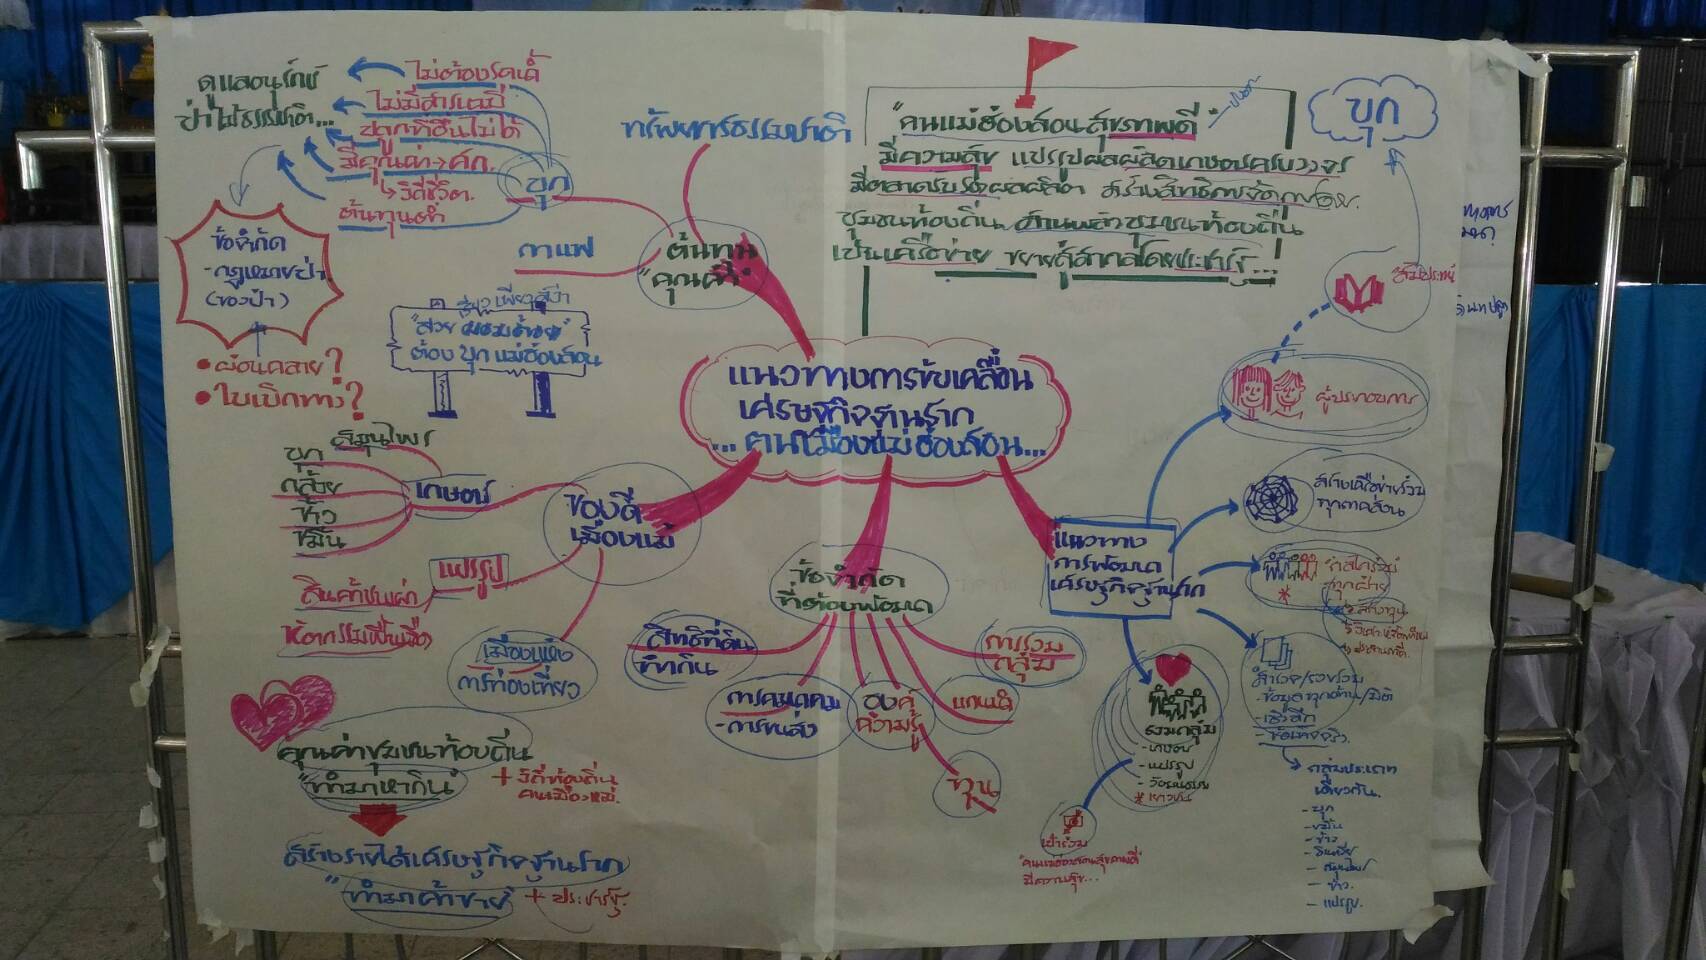 ดูแลอนุรักษ์
ป่าไม้ธรรมชาติ...
ไม่ต้องรดน้ำ
ไม่มีสารเคมี
ปลูกที่อื่นไม่ได้
มีคุณค่า → ศก.
↳ วิถีชีวิต.
ต้นทุนต่ำ
บุก
ข้อจำกัด
- กฎหมายป่า
(ของป่า)
• ผ่อนคลาย?
• ใบเบิกทาง?
ทรัพยากรธรรมชาติ
กาแฟ
ต้นทุน
"คุณค่า"
ต้อง บุก แม่ฮ่องสอน
"คนแม่ฮ่องสอนสุขภาพดี"
มีความสุข แปรรูปผลผลิตเกษตรครบวงจร
มีตลาดรับรองผลผลิต
ชุมชนท้องถิ่น สานพลังชุมชนท้องถิ่น
เป็นเครือข่าย ขยายสู่สากลโดยประชารัฐ...
บุก
แนวทางการขับเคลื่อน
เศรษฐกิจฐานราก
...คนเมืองแม่ฮ่องสอน...
ผู้ประกอบการ
สร้างเครือข่ายร่วม
ทุกภาคส่วน
ทุกฝ่าย
แนวทาง
การพัฒนา
เศรษฐกิจฐานราก
สำรวจ/รวบรวม
- ข้อมูลทุกด้าน/มิติ
- เชิงลึก
- ข้อเท็จจริง.
→ กลุ่มประเภท
เดียวกัน.
- บุก
- ขมิ้น
- ข้าว
- สมุนไพร
- แปรรูป.
รวมกลุ่ม
- เกษตร
- แปรรูป
* เยาวชน
เป้าร่วม
"คนแม่ฮ่องสอนสุขภาพดี"
มีความสุข...
ของดี
เมืองแม่
เกษตร
สมุนไพร
บุก
กล้วย
ข้าว
ขมิ้น
แปรรูป
สินค้าชนเผ่า
เมืองแห่ง
การท่องเที่ยว
ข้อจำกัด
ที่ต้องพัฒนา
สิทธิที่ดิน
ทำกิน
การคมนาคม
- การขนส่ง
องค์
ความรู้
ทุน
การรวม
กลุ่ม
คุณค่าชุมชนท้องถิ่น
"ทำมาหากิน"
+ วิถีท้องถิ่น
สร้างรายได้เศรษฐกิจฐานราก
"ทำมาค้าขาย"
+ ประชารัฐ